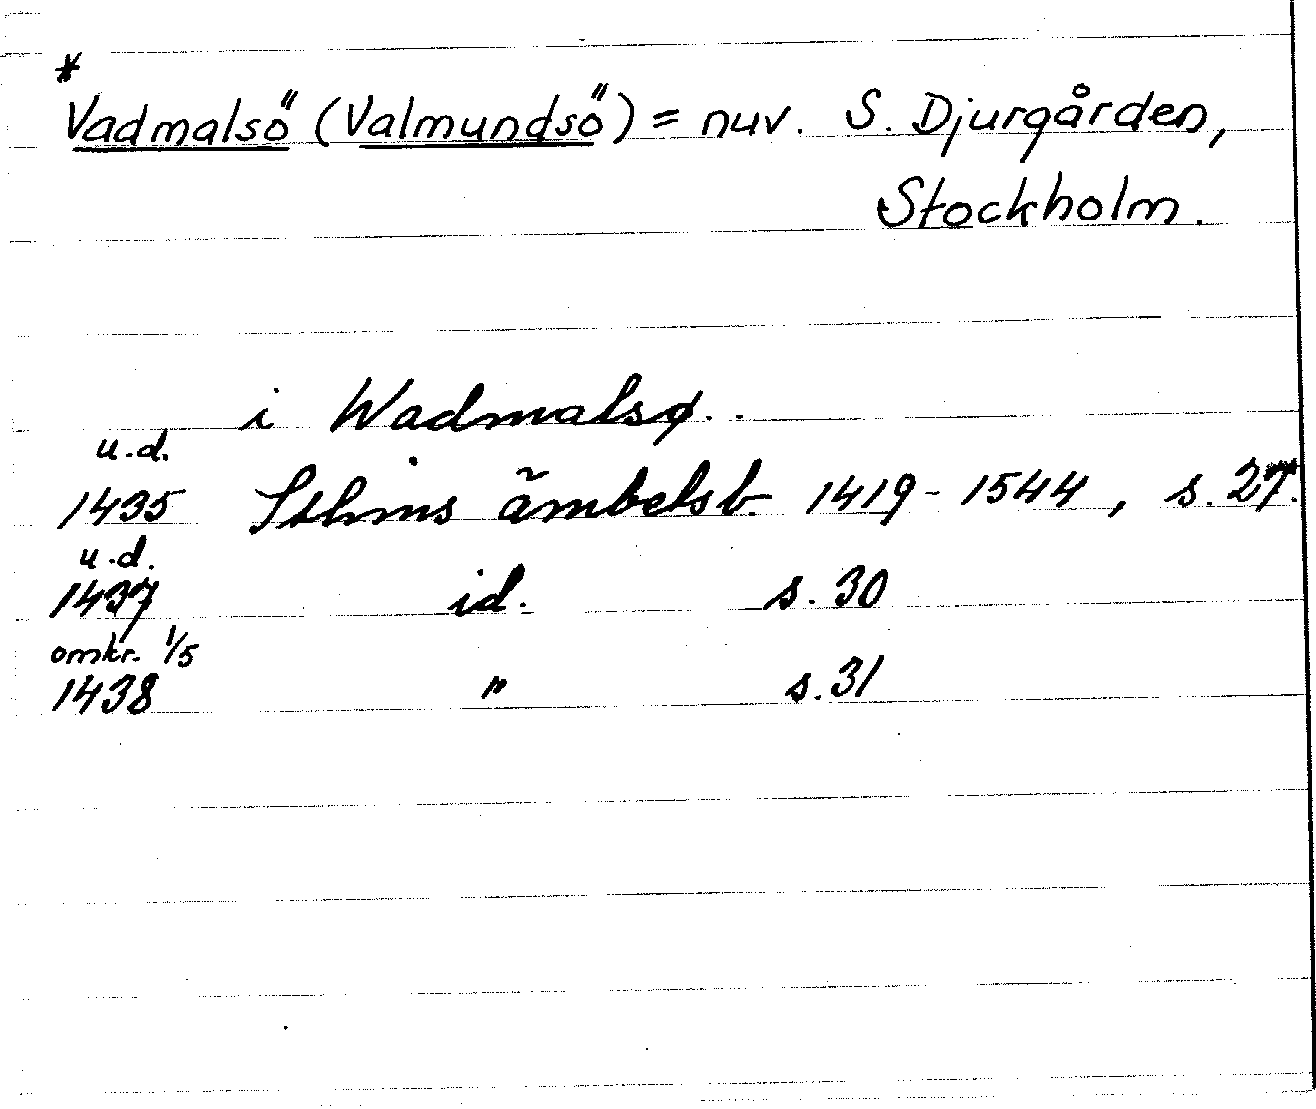 *
Vadmalsö (Valmundsö) = nuv. S. Djurgården,
Stockholm.
i Wadmalsø.
u.d.
1435 Sthms ämbetsb. 1419-1544, s. 27.
u.d.
1437 id. s. 30
omkr. 1/5
1438 " s. 31